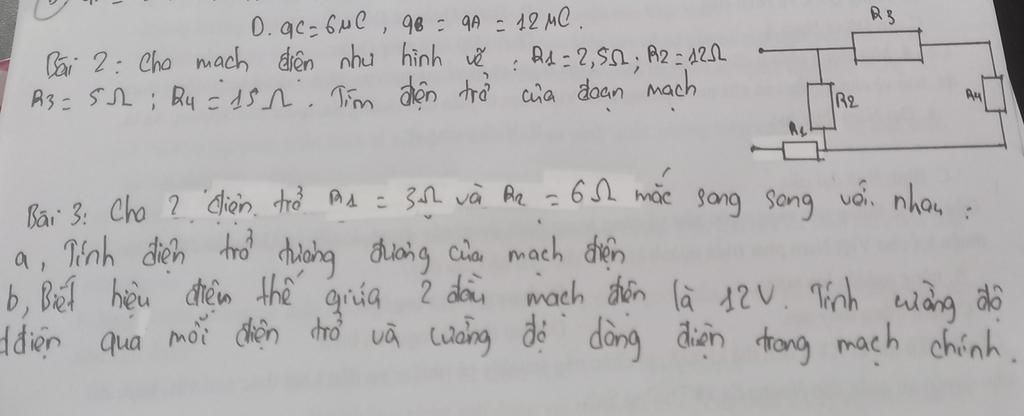 D. qC = 6 μC , qB = qA = 12 μC .
Bài 2 : Cho mạch điện như hình vẽ : R1 = 2,5Ω ; R2 = 12Ω
R3 = 5Ω ; R4 = 15Ω . Tìm điện trở của đoạn mạch
R3
R2
R4
R1
Bài 3 : Cho 2 điện trở R1 = 3Ω và R2 = 6Ω mắc song song với nhau :
a, Tính điện trở tương đương của mạch điện
b, Biết hiệu điện thế giữa 2 đầu mạch điện là 12V . Tính cường độ
dđiện qua mỗi điện trở và cường độ dòng điện trong mạch chính .